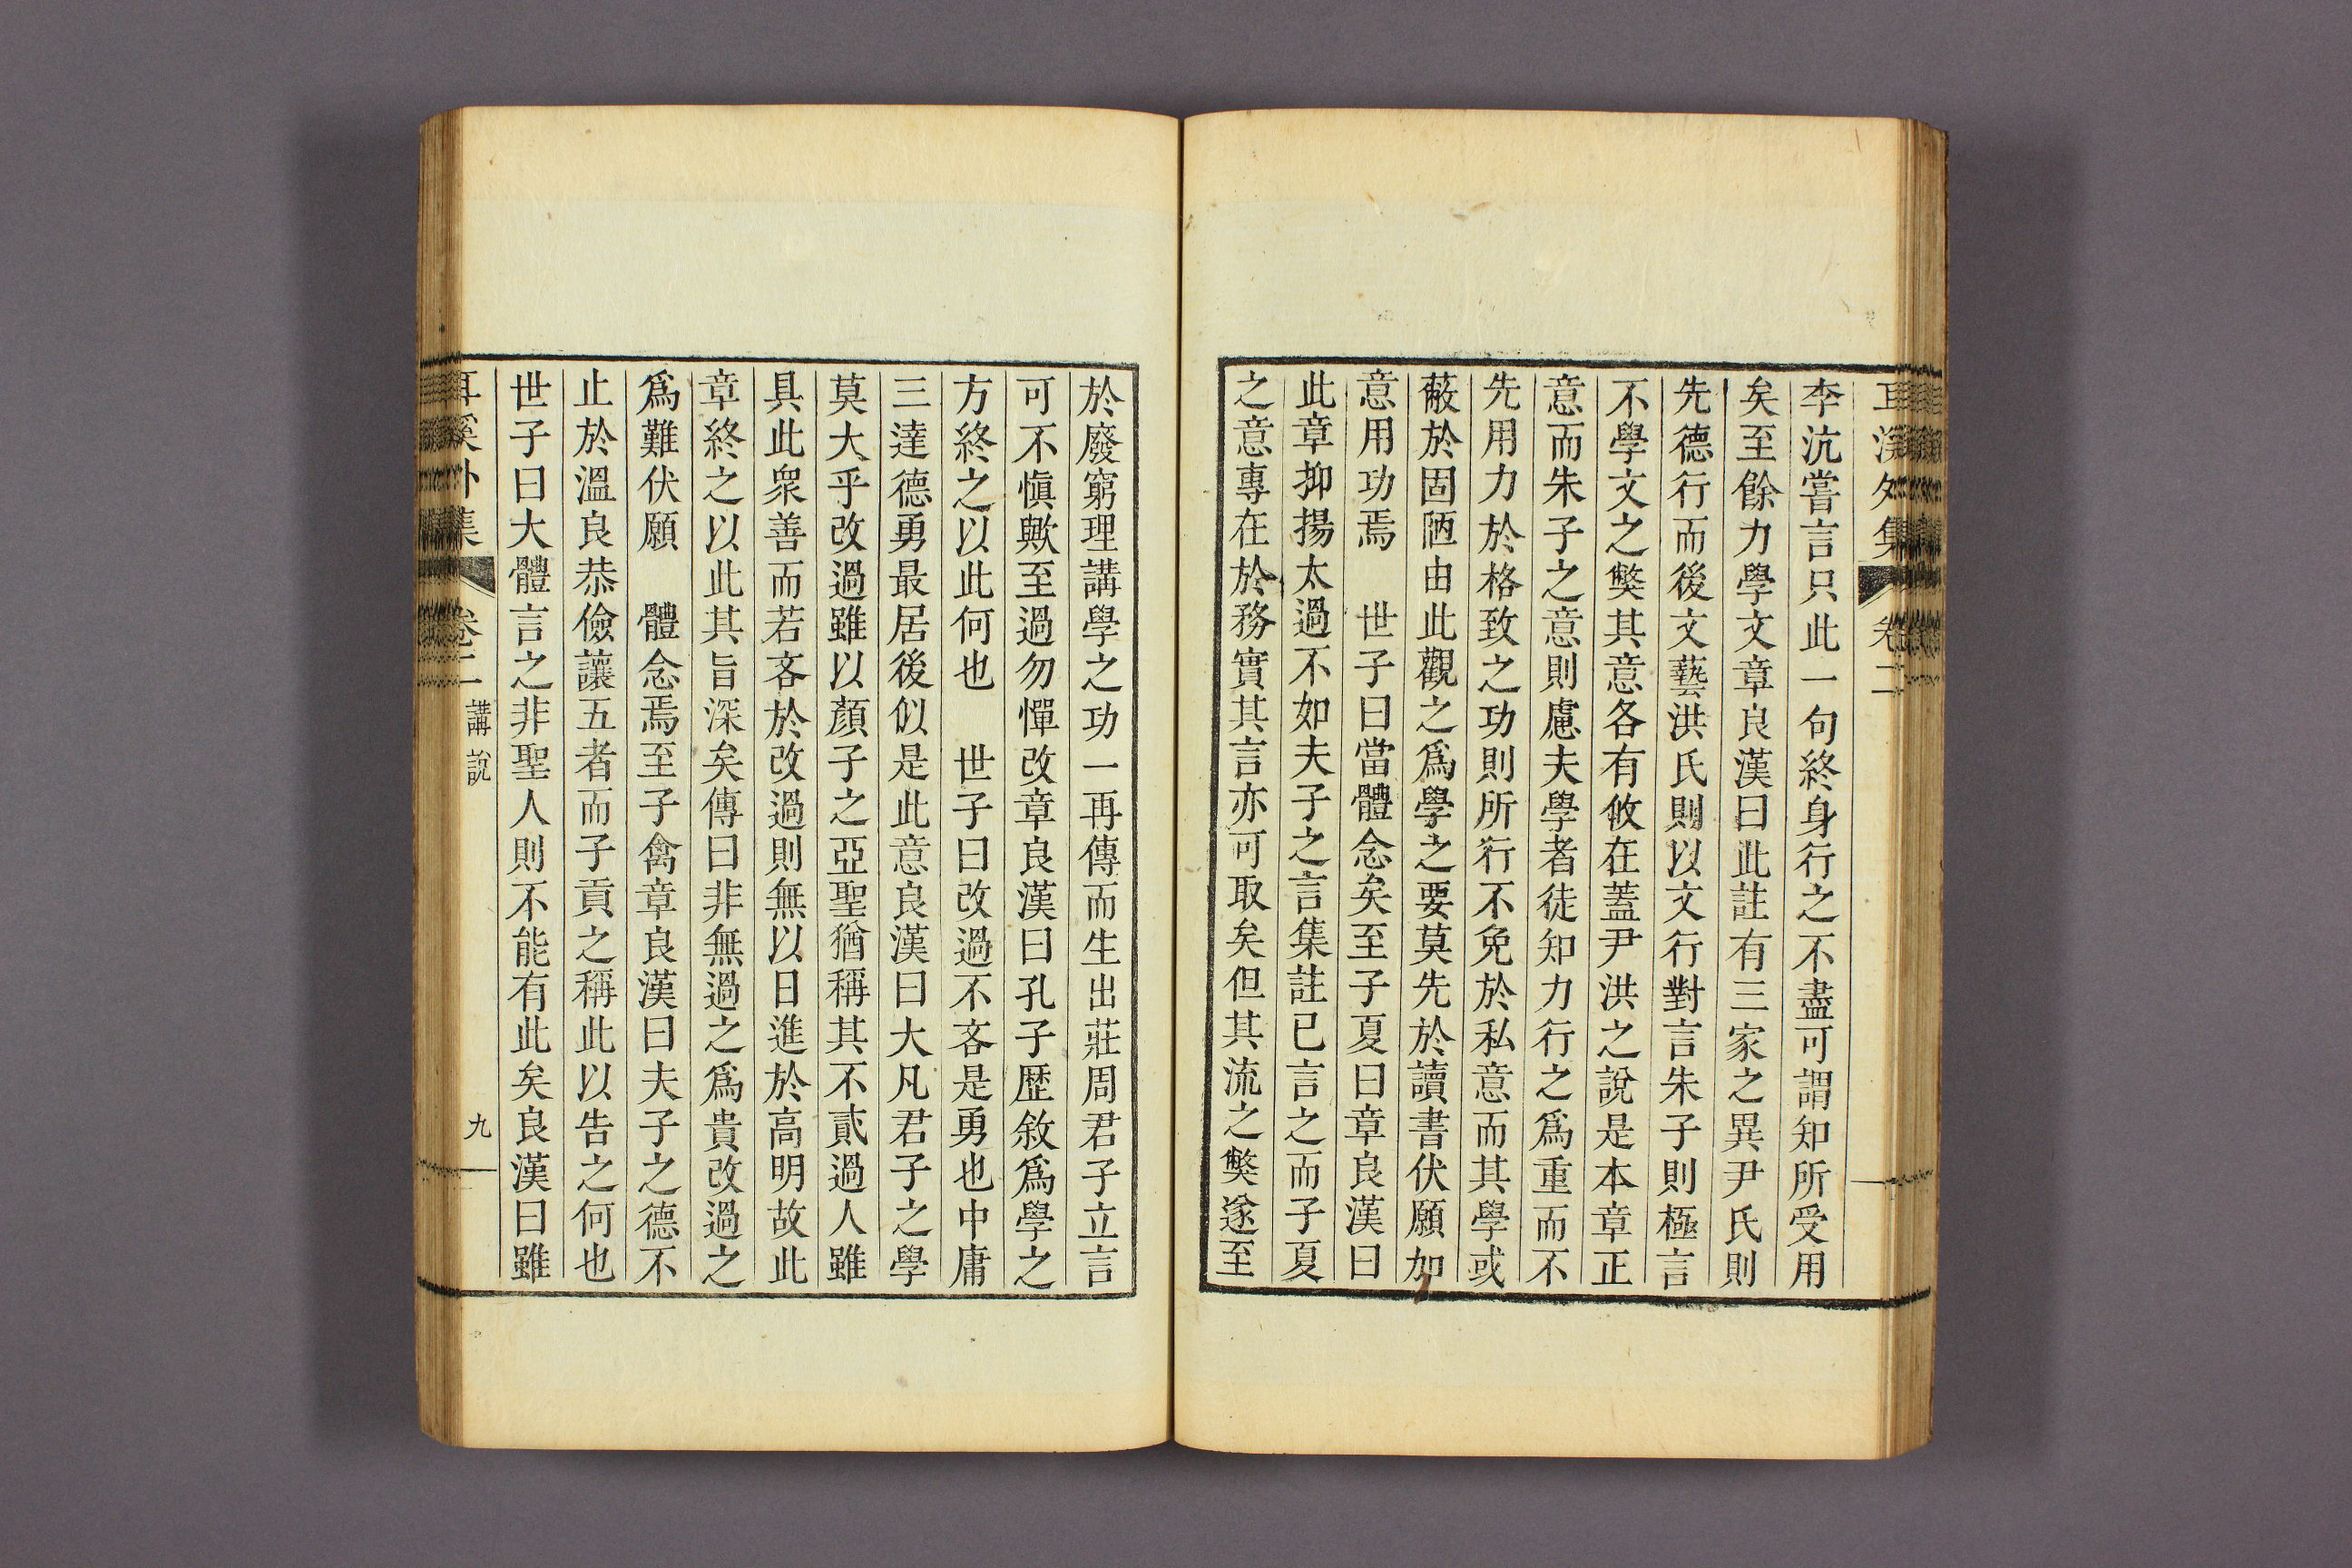 耳溪外集 卷二
李沆嘗言只此一句終身行之不盡可謂知所受用
矣至餘力學文章良漢曰此註有三家之異尹氏則
先德行而後文藝洪氏則以文行對言朱子則極言
不學文之弊其意各有攸在蓋尹洪之說是本章正
意而朱子之意則慮夫學者徒知力行之爲重而不
先用力於格致之功則所行不免於私意而其學或
蔽於固陋由此觀之爲學之要莫先於讀書伏願加
意用功焉 世子曰當體念矣至子夏曰章良漢曰
此章抑揚太過不如夫子之言集註已言之而子夏
之意專在於務實其言亦可取矣但其流之弊遂至
於廢窮理講學之功一再傳而生出莊周君子立言
可不愼歟至過勿憚改章良漢曰孔子歷敘爲學之
方終之以此何也 世子曰改過不吝是勇也中庸
三達德勇最居後似是此意良漢曰大凡君子之學
莫大乎改過雖以顏子之亞聖猶稱其不貳過人雖
具此衆善而若吝於改過則無以日進於高明故此
章終之以此其旨深矣傳曰非無過之爲貴改過之
爲難伏願 體念焉至子禽章良漢曰夫子之德不
止於溫良恭儉讓五者而子貢之稱此以告之何也
世子曰大體言之非聖人則不能有此矣良漢曰雖
耳溪外集 卷二 講說 九